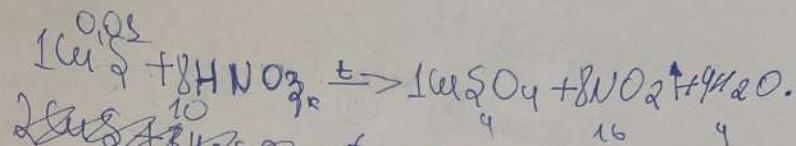 0,05
1CuS + 8HNO3к t→ 1CuSO4 + 8NO2↑ + 4H2O.
10 4 16 4